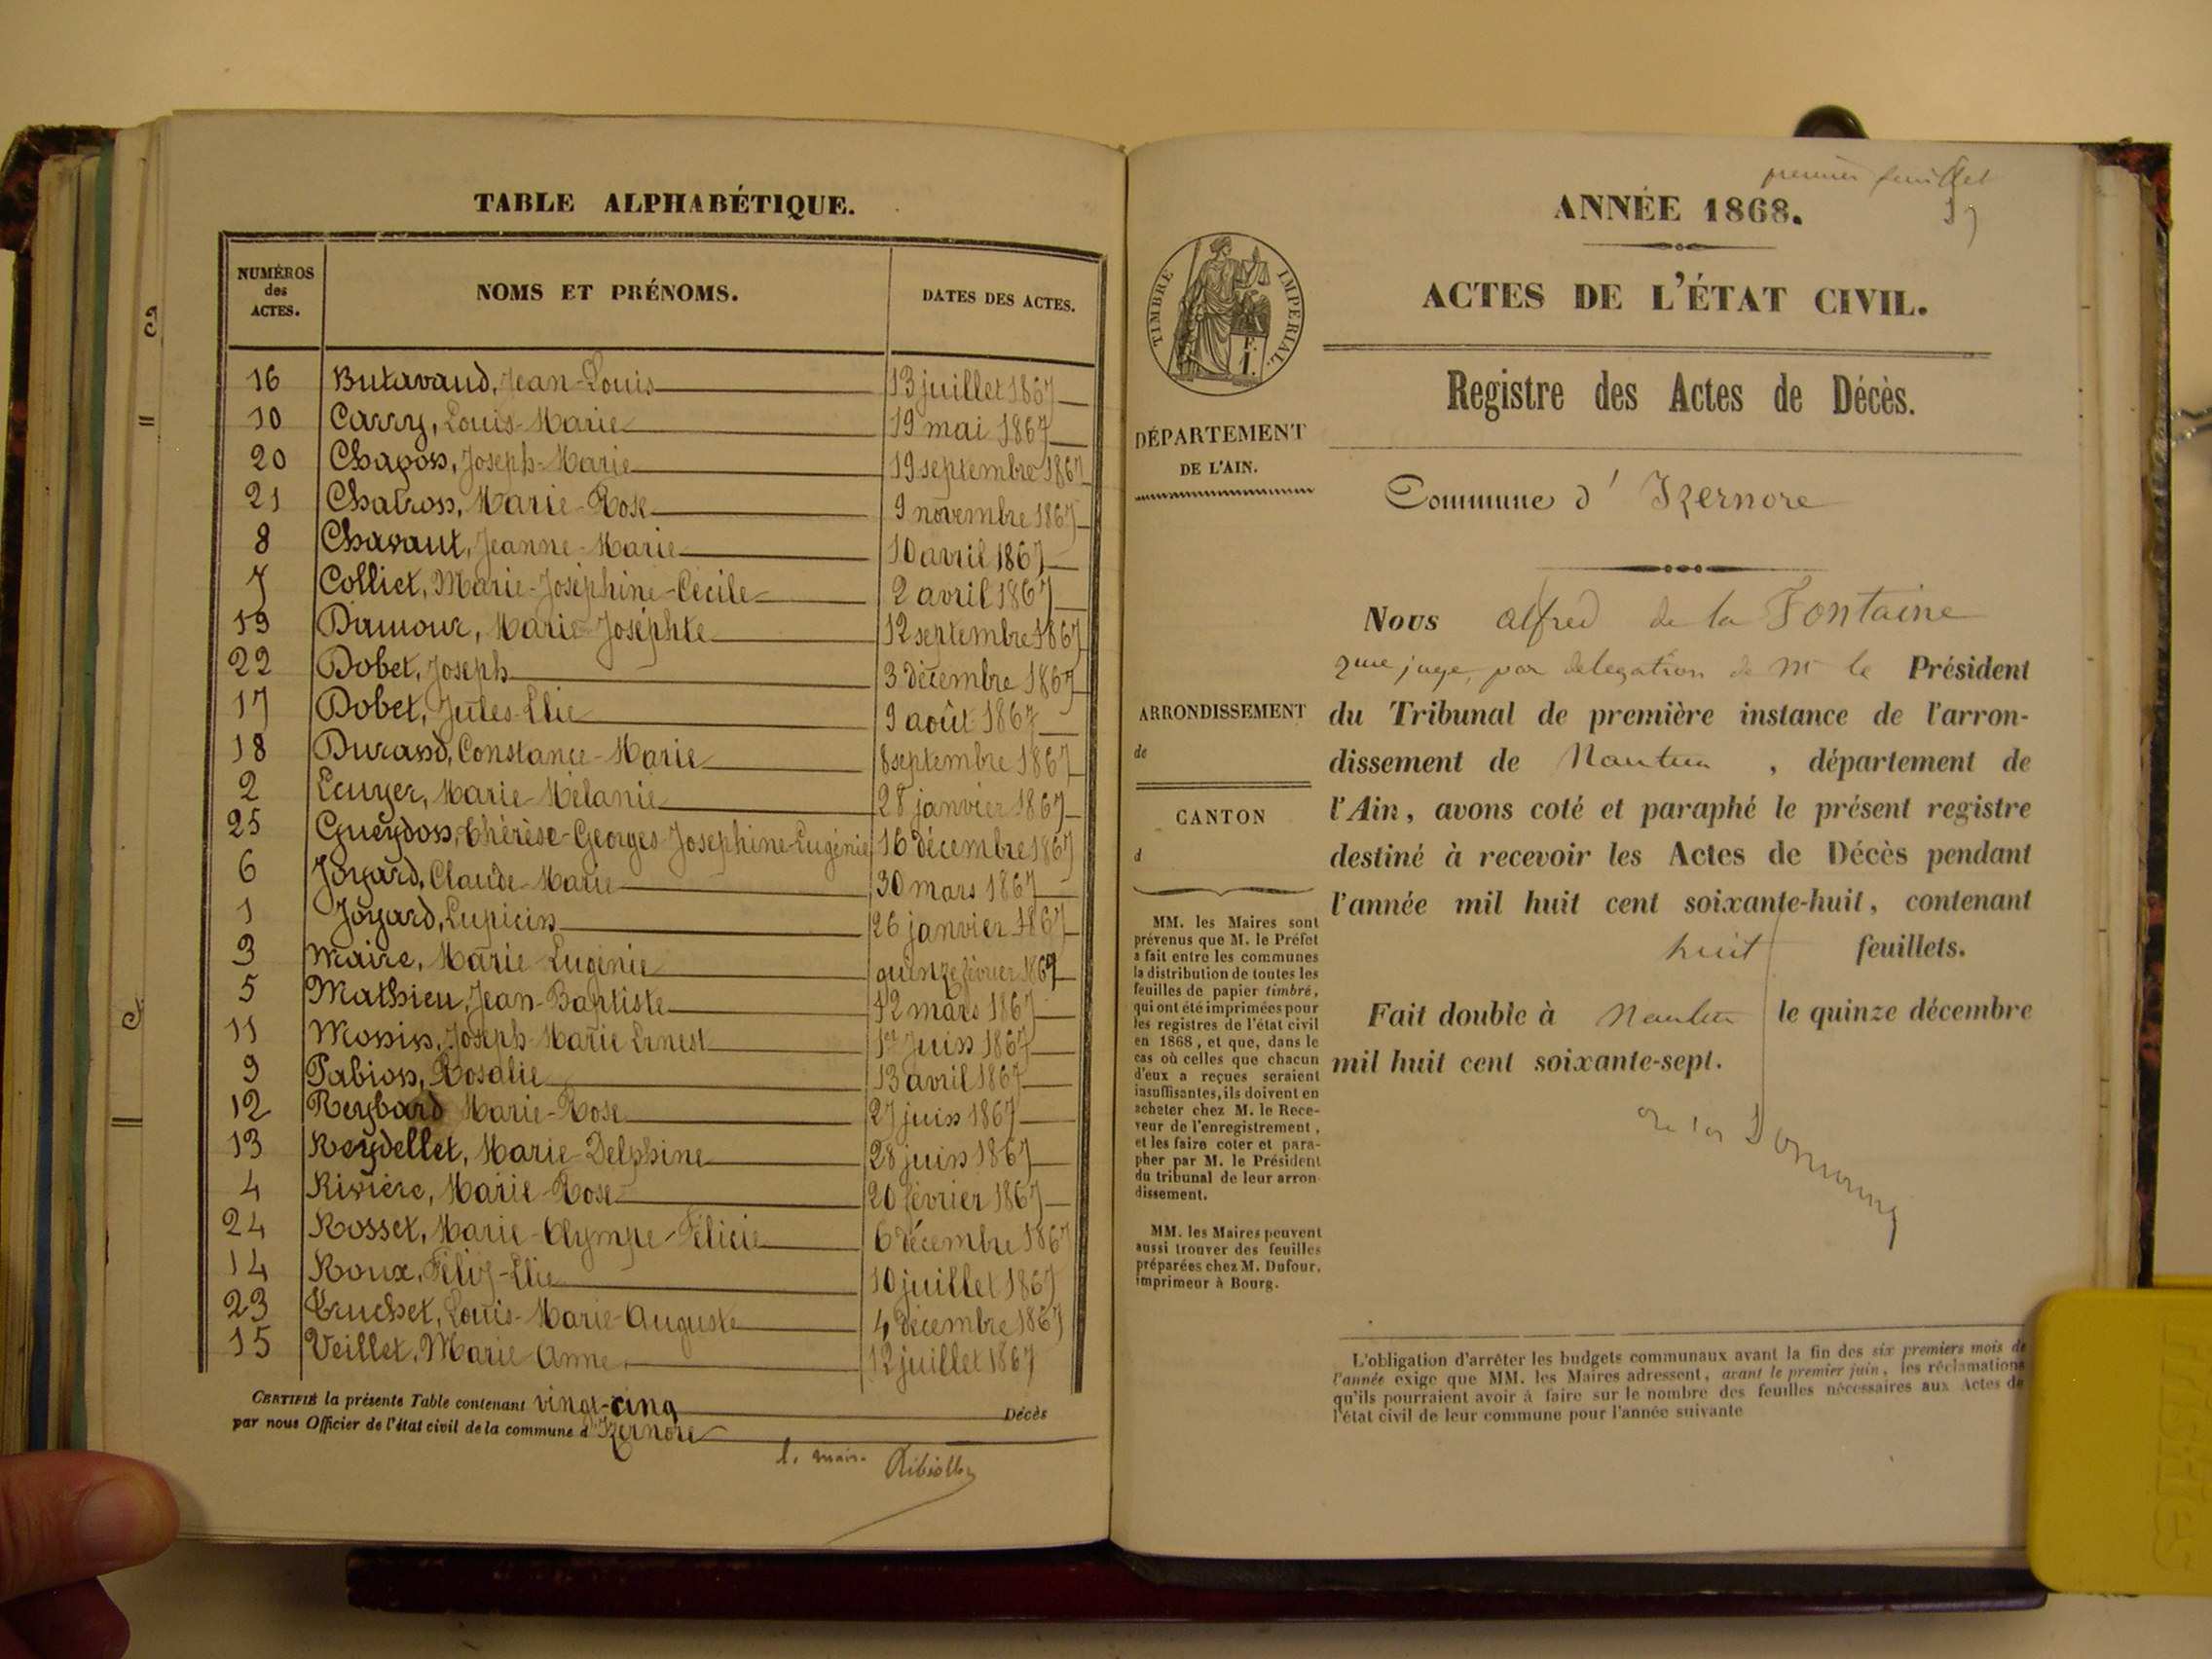 TABLE ALPHABÉTIQUE.
NUMÉROS
des
ACTES.
NOMS ET PRÉNOMS.
DATES DES ACTES.
16 Butavand, Jean-Louis 13 juillet 1867
10 Carry, Louis-Marie 19 mai 1867
20 Chapon, Joseph-Marie 19 septembre 1867
21 Chatron, Marie-Rose 9 novembre 1867
8 Chavant, Jeanne-Marie 10 avril 1867
7 Colliet, Marie-Joséphine-Cécile 2 avril 1867
19 Damour, Marie-Joséphte 12 septembre 1867
22 Dobet, Joseph 3 décembre 1867
17 Dobet, Jules-Elie 9 août 1867
18 Durand, Constance-Marie 8 septembre 1867
2 Ecuyer, Marie-Mélanie 28 janvier 1867
25 Gueydon, Thérèse-Georges-Josephine-Eugénie 16 décembre 1867
6 Joyard, Claude-Marie 30 mars 1867
1 Joyard, Lupicin 26 janvier 1867
3 Maire, Marie Eugénie quinze février 1867
5 Mathieu, Jean-Baptiste 12 mars 1867
11 Monnin, Joseph-Marie Ernest 1er Juin 1867
9 Pabion, Rosalie 13 avril 1867
12 Reybard Marie-Rose 27 juin 1867
13 Reydellet, Marie-Delphine 28 juin 1867
4 Rivière, Marie-Rose 20 février 1867
24 Rosset, Marie-Olympe-Félicie 6 décembre 1867
14 Roux, Félix-Elie 10 juillet 1867
23 Truchet, Louis-Marie-Auguste 4 décembre 1867
15 Veillet, Marie Anne 12 juillet 1867
CERTIFIÉ la présente Table contenant vingt-cinq Décès
par nous Officier de l'état civil de la commune d'Izernore
le maire
premier feuillet
ANNÉE 1868.
ACTES DE L'ÉTAT CIVIL.
TIMBRE IMPÉRIAL.
Registre des Actes de Décès.
DÉPARTEMENT
DE L'AIN.
Commune d'Izernore
Nous alfred de la Fontaine
juge, par delegation de Mr le Président
ARRONDISSEMENT
de
CANTON
d
du Tribunal de première instance de l'arron-
dissement de Nantua, département de
l'Ain, avons coté et paraphé le présent registre
destiné à recevoir les Actes de Décès pendant
l'année mil huit cent soixante-huit, contenant
huit feuillets.
Fait double à Nantua le quinze décembre
mil huit cent soixante-sept.
MM. les Maires sont
prévenus que M. le Préfet
a fait entre les communes
la distribution de toutes les
feuilles de papier timbré,
qui ont été imprimées pour
les registres de l'état civil
en 1868, et que, dans le
cas où celles que chacun
d'eux a reçues seraient
insuffisantes, ils doivent en
acheter chez M. le Rece-
veur de l'enregistrement,
et les faire coter et para-
pher par M. le Président
du tribunal de leur arron
dissement.
MM. les Maires peuvent
aussi trouver des feuilles
préparées chez M. Dufour,
imprimeur à Bourg.
L'obligation d'arrêter les budgets communaux avant la fin des six premiers mois de
l'année exige que MM. les Maires adressent, avant le premier juin, les réclamations
qu'ils pourraient avoir à faire sur le nombre des feuilles nécessaires aux Actes de
l'état civil de leur commune pour l'année suivante